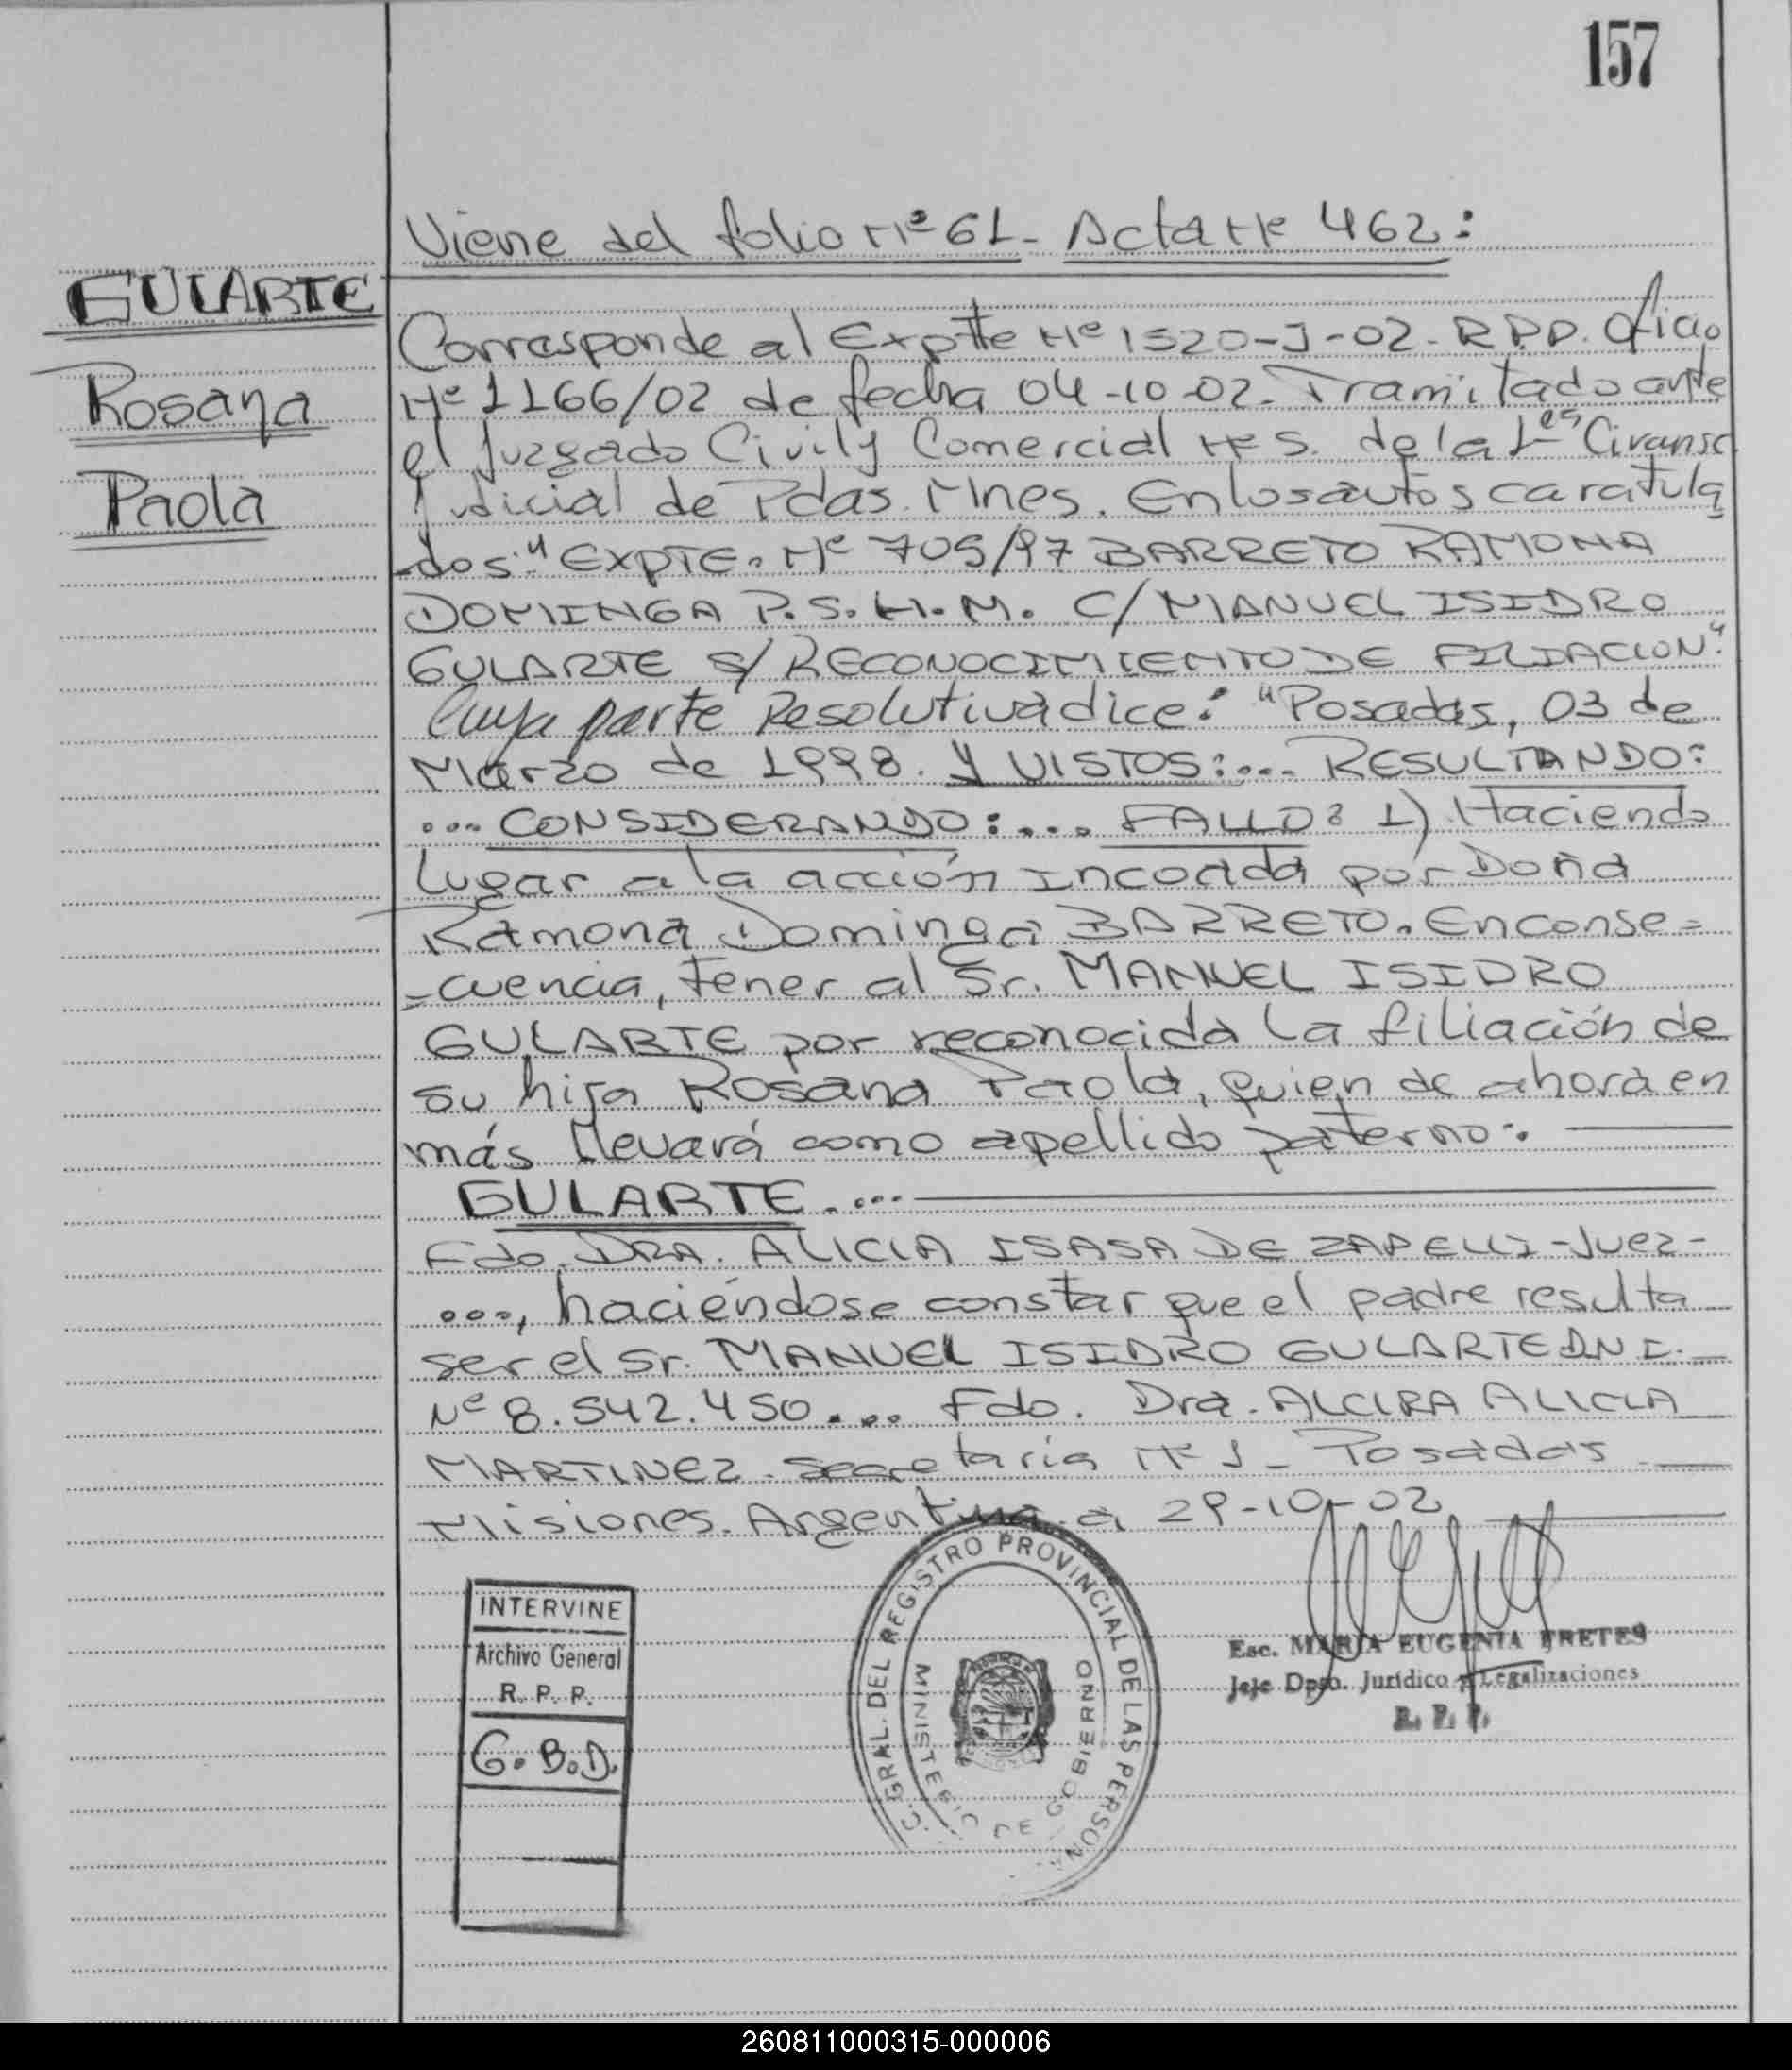 157
Viene del folio Nº 61- Acta Nº 462:
GULARTE
Rosana
Paola
Corresponde al Exptte Nº 1520-J-02- R.P.P. Oficio
Nº 1166/02 de fecha 04-10-02- Tramitado ante
el Juzgado Civil y Comercial Nº 5. de la 1era Circunsc
judicial de Pdas. Mnes. En los autos caratula
dos:" EXPTE. Nº 705/97 BARRETO RAMONA
DOMINGA P.S.H.M. C/ MANUEL ISIDRO
GULARTE S/ RECONOCIMIENTO DE FILIACION".
Cuya parte Resolutiva dice: "Posadas, 03 de
Marzo de 1998. Y VISTOS:... RESULTANDO:
... CONSIDERANDO:... FALLO: 1) Haciendo
lugar a la acción incoada por Doña
Ramona Dominga BARRETO. En conse=
=cuencia, tener al Sr. MANUEL ISIDRO
GULARTE por reconocida la filiación de
su hija Rosana Paola, quien de ahora en
más llevará como apellido paterno:.
GULARTE. ...
Fdo. DRA. ALICIA ISASA DE ZAPELLI -Juez-
..., haciéndose constar que el padre resulta
ser el Sr. MANUEL ISIDRO GULARTE D.N.I.
Nº 8.542.450... Fdo. Dra. ALCIRA ALICIA
MARTINEZ - Secretaria Nº 1 - Posadas
Misiones. Argentina. a 29-10-02
INTERVINE
Archivo General
R. P. P.
G.B.D.
GRAL. DEL REGISTRO PROVINCIAL DE LAS PERSONAS
MINISTERIO DE GOBIERNO
Esc. MARIA EUGENIA FRETES
Jefe Dpto. Jurídico y Legalizaciones
R. P. P.
260811000315-000006